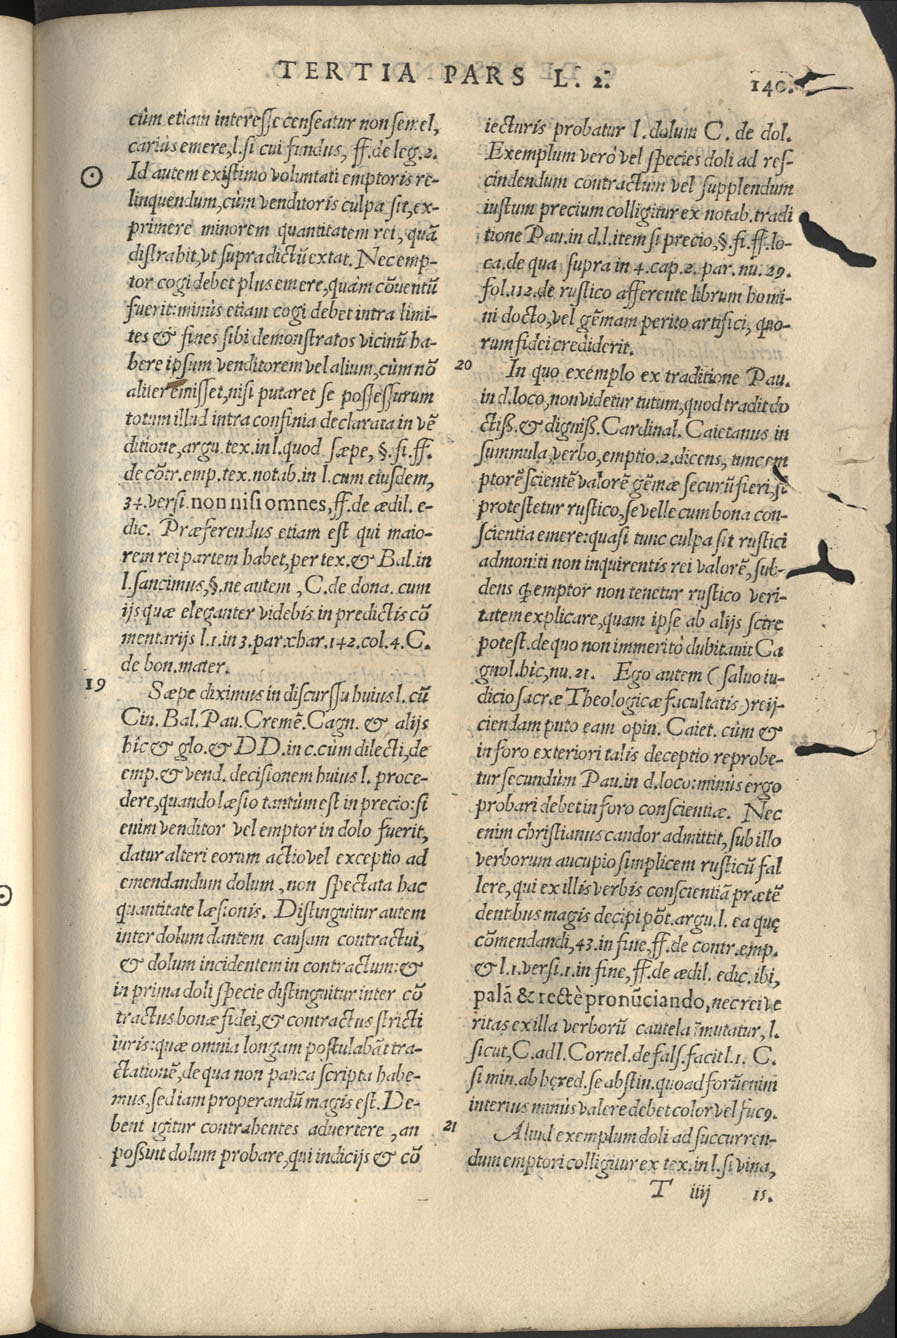 TERTIA PARS L. 2.
140.
cùm etiam interesse censeatur non semel,
carius emere, l. si cui fundus, ff. de leg. 2.
Id autem existimo voluntati emptoris re-
linquendum, cùm venditoris culpa sit, ex-
primere minorem quantitatem rei, quā
distrahit, vt supra dictū extat. Nec emp-
tor cogi debet plus emere, quàm cōuentū
fuerit: minùs etiam cogi debet intra limi-
tes & fines sibi demonstratos vicinū ha-
bere ipsum venditorem vel alium, cùm nō
aliter emisset, nisi putaret se possessurum
totum illud intra confinia declarata in vē
ditione, argu. tex. in l. quod sæpe, §. si. ff.
de cōtr. emp. tex. notab. in l. cum eiusdem,
34. versi. non nisi omnes, ff. de ædil. e-
dic. Præferendus etiam est qui maio-
rem rei partem habet, per tex. & Bal. in
l. sancimus, §. ne autem, C. de dona. cum
ijs quæ eleganter videbis in predictis cō
mentarijs l. 1. in 3. par. char. 142. col. 4. C.
de bon. mater.
19
Sæpe diximus in discurssu huius l. cū
Cin. Bal. Pau. Cremē. Cagn. & alijs
hîc & glo. & DD. in c. cùm dilecti, de
emp. & vend. decisionem huius l. proce-
dere, quando læsio tantùm est in precio: si
enim venditor vel emptor in dolo fuerit,
datur alteri eorum actio vel exceptio ad
emendandum dolum, non spectata hac
quantitate læsionis. Distinguitur autem
inter dolum dantem causam contractui,
& dolum incidentem in contractum: &
in prima doli specie distinguitur inter cō
tractus bonæ fidei, & contractus stricti
iuris: quæ omnia longam postulabāt tra-
ctationē, de qua non pauca scripta habe-
mus, sed iam properandū magis est. De-
bent igitur contrahentes aduertere, an
possint dolum probare, qui indicijs & cō
iecturis probatur l. dolum C. de dol.
Exemplum verò vel species doli ad res-
cindendum contractum vel supplendum
iustum precium colligitur ex notab. tradi
tione Pau. in d. l. item si precio, §. fi. ff. lo-
ca. de qua supra in 4. cap. 2. par. nu. 29.
fol. 112. de rustico afferente librum homi-
ni docto, vel gēmam perito artifici, quo-
rum fidei crediderit.
20
In quo exemplo ex traditione Pau.
in d. loco, non videtur tutum, quod tradit do
ctiß. & digniß. Cardinal. Caietanus in
summula, verbo, emptio. 2. dicens, tunc em
ptorē scientē valorē gēmæ securū fieri, si
protestetur rustico, se velle cum bona con-
scientia emere: quasi tunc culpa sit rustici
admoniti non inquirentis rei valorē, sub-
dens ꝙ emptor non tenetur rustico veri-
tatem explicare, quam ipse ab alijs scire
potest. de quo non immeritò dubitauit Ca
gnol. hîc, nu. 21. Ego autem (saluo iu-
dicio sacræ Theologicæ facultatis) reij-
ciendam puto eam opin. Caiet. cùm &
in foro exteriori talis deceptio reprobe-
tur secundùm Pau. in d. loco: minùs ergo
probari debet in foro conscientiæ. Nec
enim christianus candor admittit, sub illo
verborum aucupio simplicem rusticū fal
lere, qui ex illis verbis conscientiā prætē
dentibus magis decipi pōt. argu. l. ea quę
cōmendandi, 43. in fine, ff. de contr. emp.
& l. 1. versi. 1. in fine, ff. de ædil. edic. ibi,
palā & rectè pronūciando, nec rei ve
ritas ex illa verborū cautela īmutatur, l.
sicut, C. ad l. Cornel. de fals. facit l. 1. C.
si min. ab hęred. se abstin. quoad forū enim
interius minùs valere debet color vel fucꝰ.
21
Aliud exemplum doli ad succurren-
dum emptori colligitur ex tex. in l. si vina,
T iiij
is.